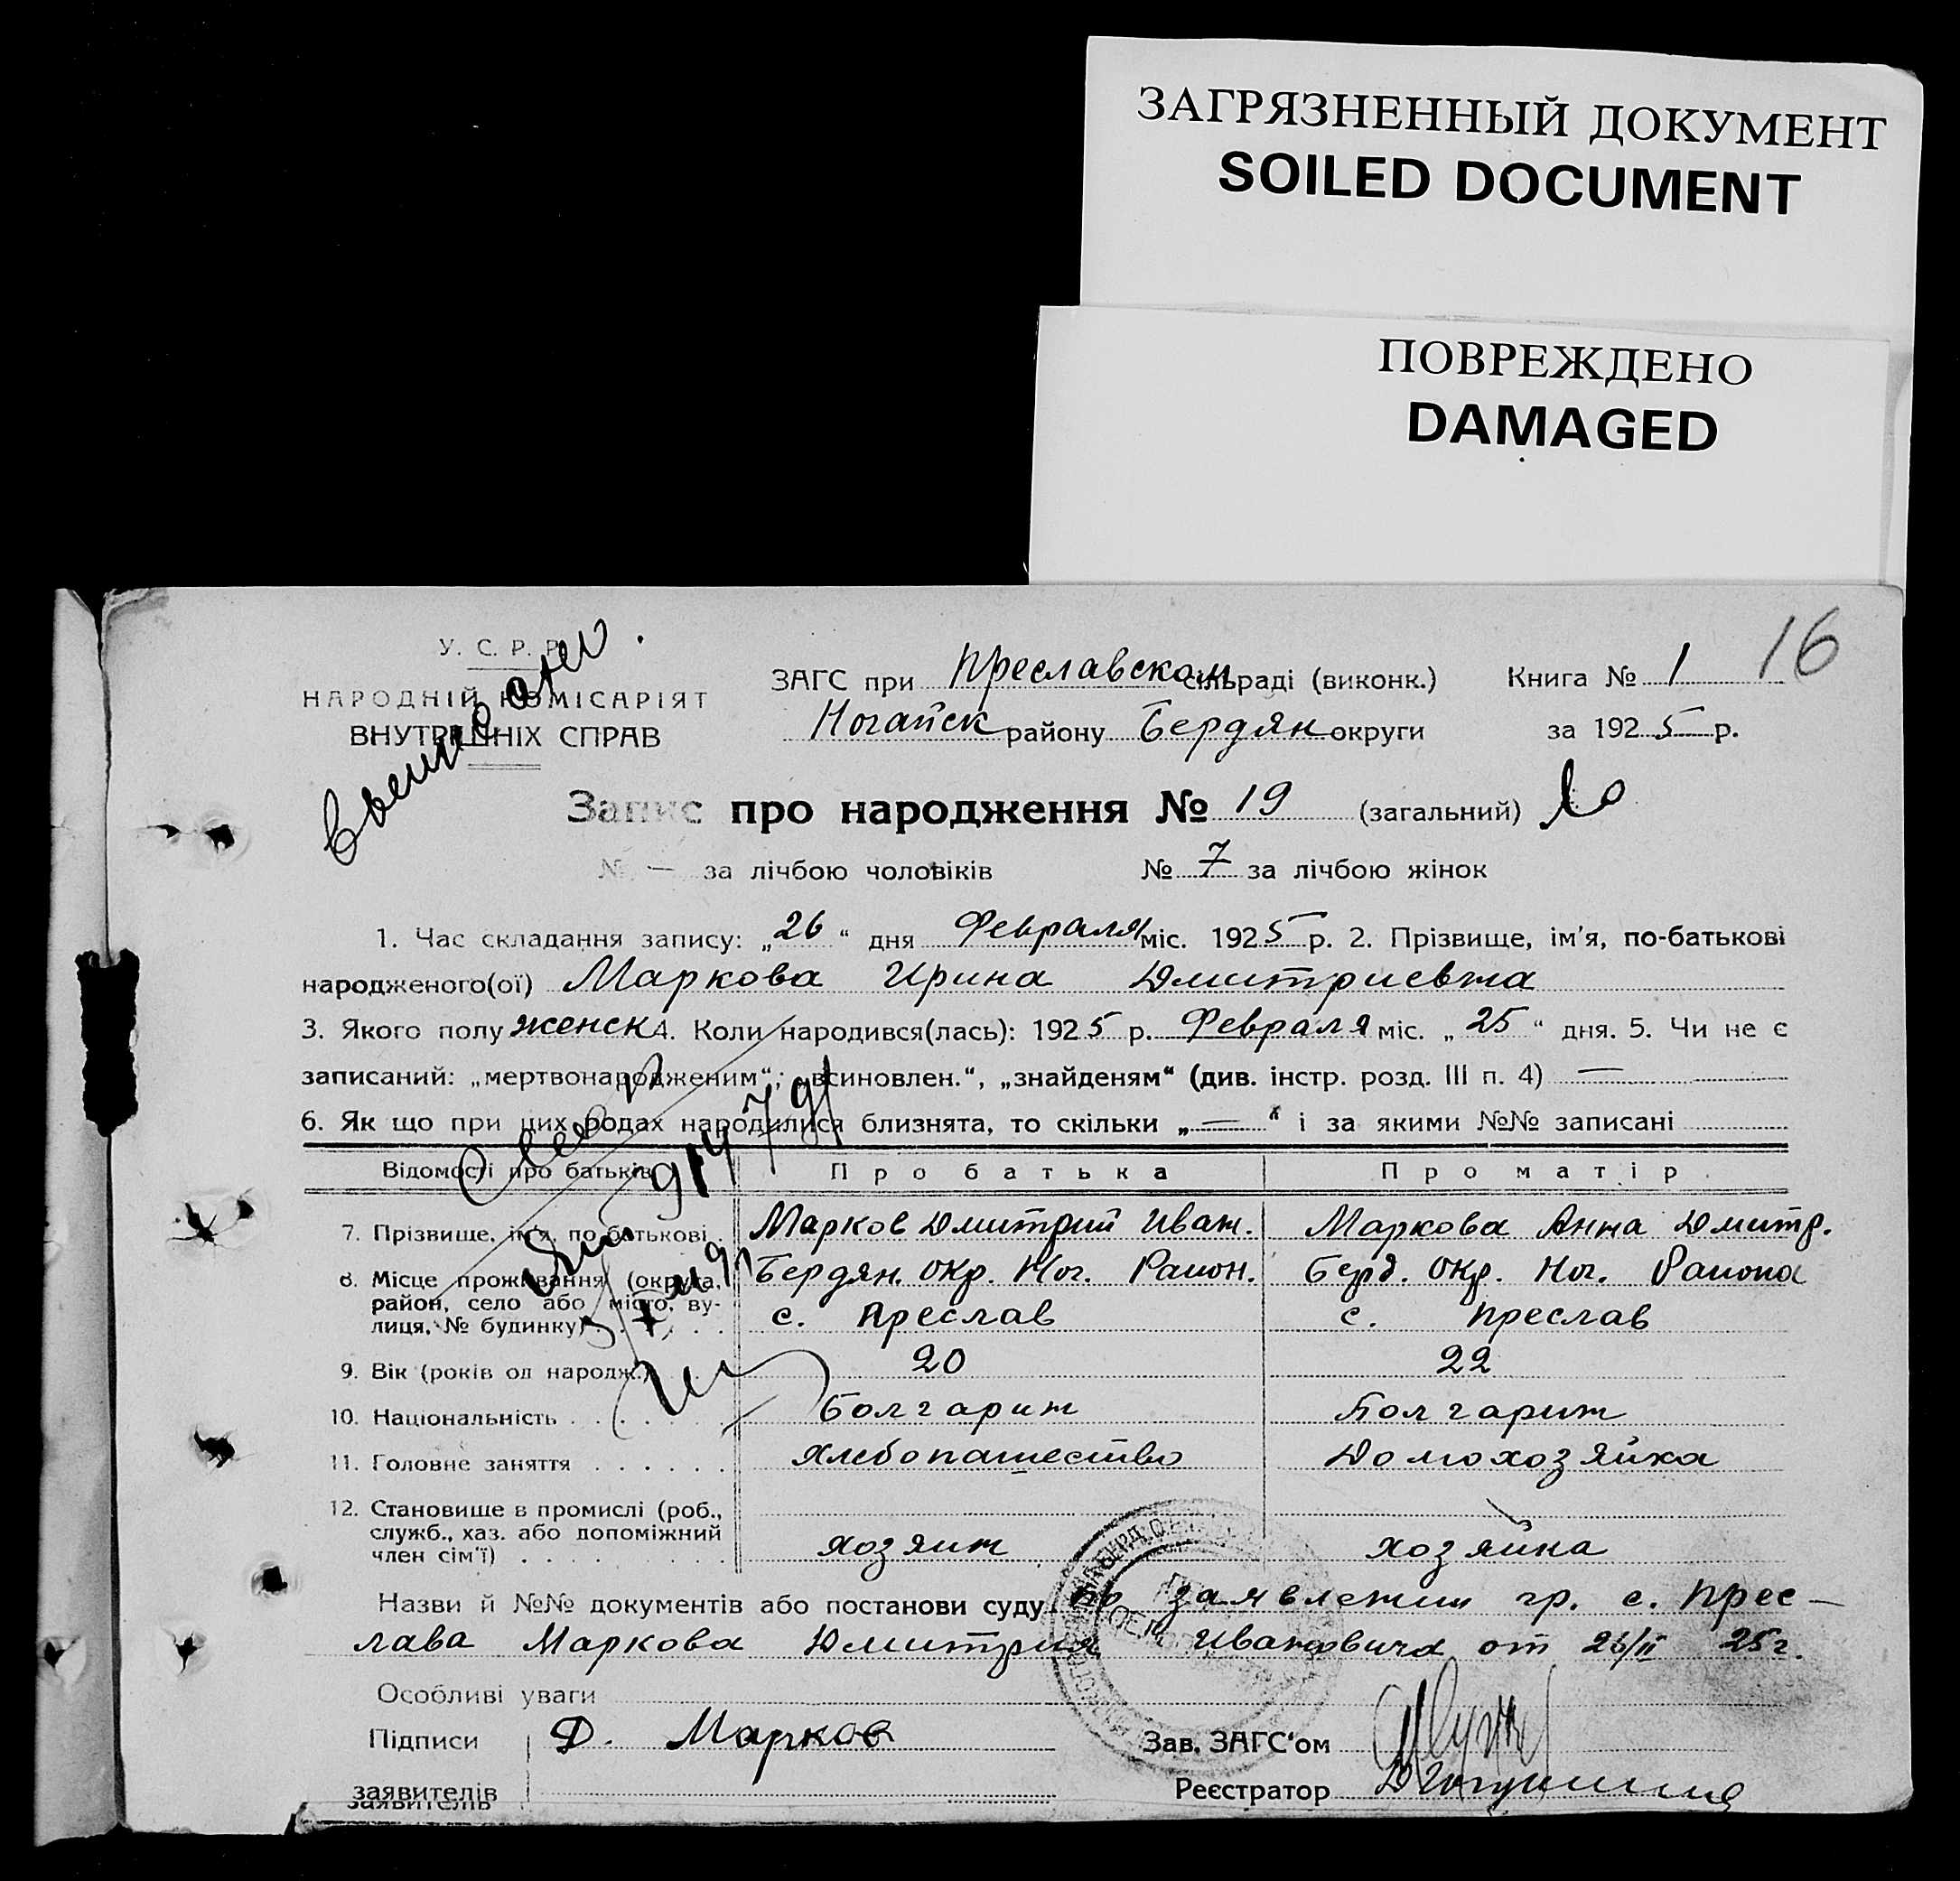 ЗАГРЯЗНЕННЫЙ ДОКУМЕНТ
SOILED DOCUMENT
ПОВРЕЖДЕНО
DAMAGED
16
У. С. Р. Р.
НАРОДНІЙ КОМІСАРІЯТ
ВНУТРІШНІХ СПРАВ
ЗАГС при Преславском сільраді (виконк.) Книга № 1
Ногайск району Бердян округи за 1925 р.
Запис про народження № 19 (загальний)
№ — за лічбою чоловіків № 7 за лічбою жінок
1. Час складання запису: „26“ дня Февраля міс. 1925 р. 2. Прізвище, ім'я, по-батькові
народженого(ої) Маркова Ирина Дмитриевна
3. Якого полу женск 4. Коли народився(лась): 1925 р. Февраля міс. „25“ дня. 5. Чи не є
записаний: „мертвонародженим“; „всиновлен.“, „знайденям“ (див. інстр. розд. III п. 4) —
6. Як що при цих родах народилися близнята, то скільки „—“ і за якими №№ записані
Відомості про батьків Про батька Про матір
7. Прізвище, ім'я, по-батькові Марков Дмитрий Иван. Маркова Анна Дмитр.
8. Місце проживання (округа, Бердян. Окр. Ног. Район. Берд. Окр. Ног. Района
район, село або місто, ву- с. Преслав с. Преслав
лиця, № будинку)
9. Вік (років од народж.) 20 22
10. Національність Болгарин Болгарин
11. Головне заняття Хлебопашество Домохозяйка
12. Становище в промислі (роб.,
служб., хаз. або допоміжний
член сім'ї) хозяин хозяйна
Назви й №№ документів або постанови суду по заявлению гр. с. Прес-
лава Маркова Дмитрия Ивановича от 26/II 25 г.
Особливі уваги
Підписи Д. Марков Зав. ЗАГС'ом
заявителів Реєстратор